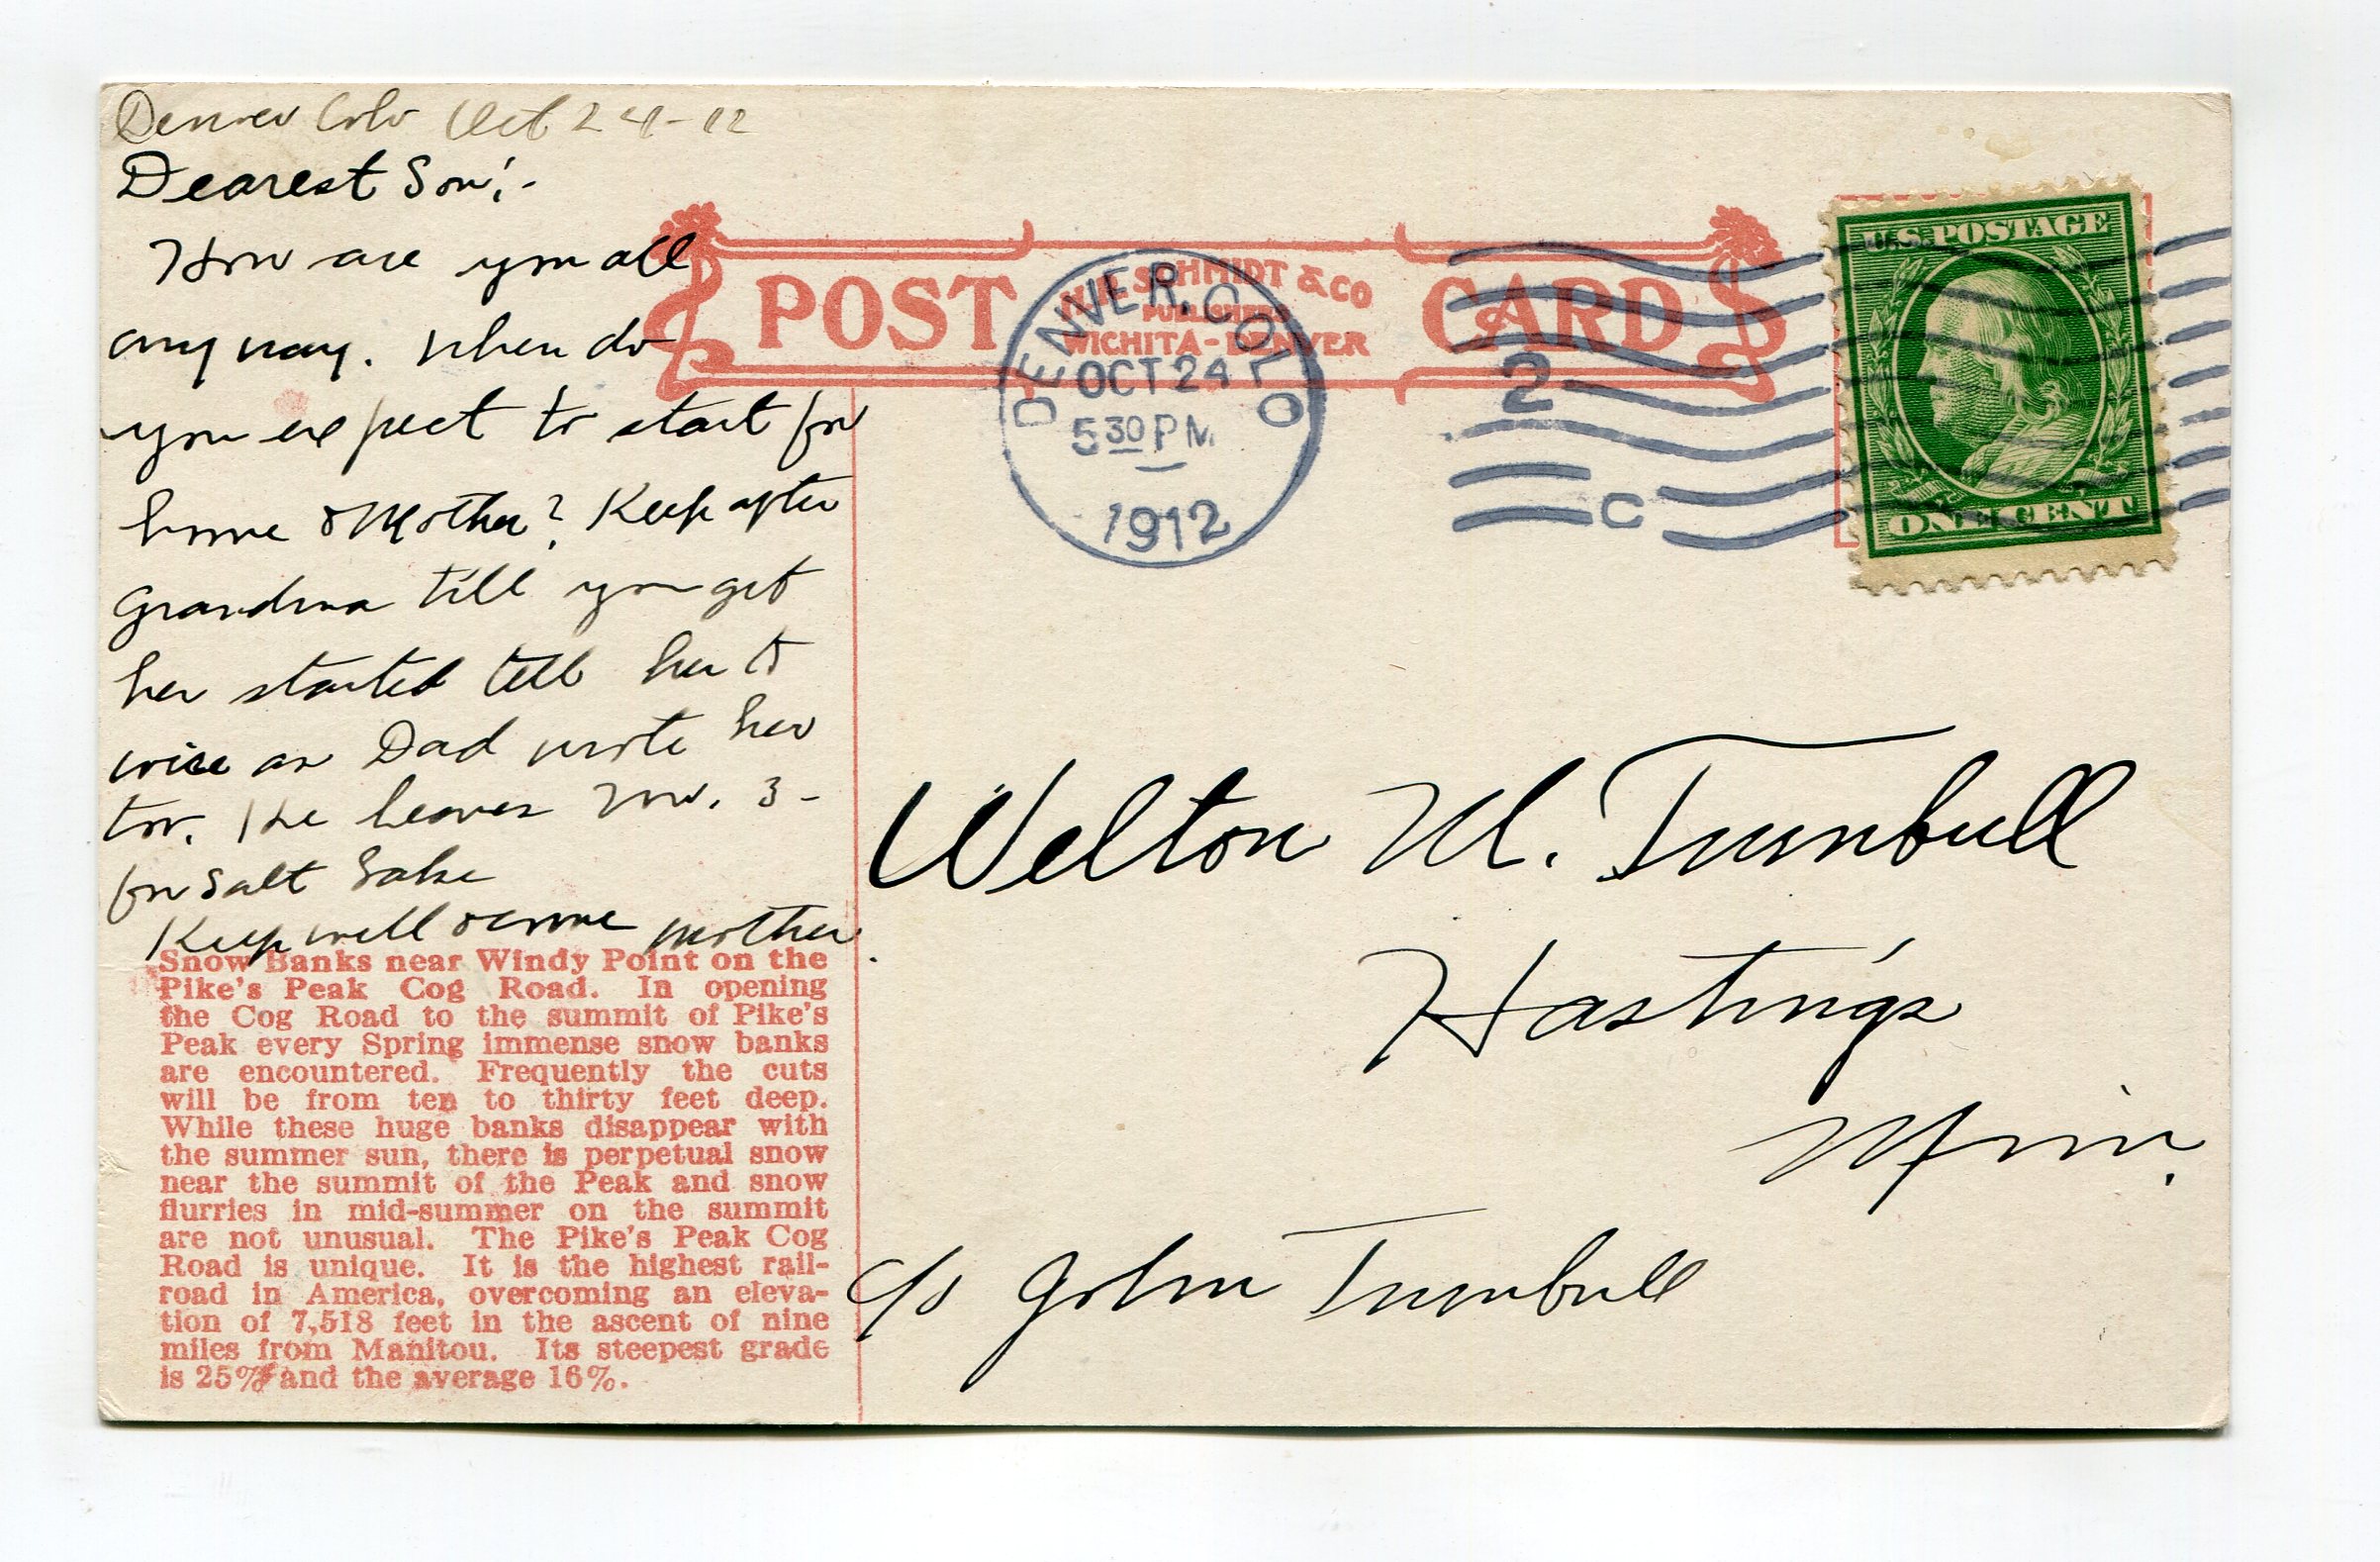 Denver Colo Oct 24-12
Dearest Son:-
How are you all
any way. When do
you expect to start for
home & Mother? Keep after
Grandma till you get
her started tell her to
wire as Dad wrote her
to. He leaves Nov. 3-
for Salt Lake
Keep well & come mother
Snow Banks near Windy Point on the
Pike's Peak Cog Road. In opening
the Cog Road to the summit of Pike's
Peak every Spring immense snow banks
are encountered. Frequently the cuts
will be from ten to thirty feet deep.
While these huge banks disappear with
the summer sun, there is perpetual snow
near the summit of the Peak and snow
flurries in mid-summer on the summit
are not unusual. The Pike's Peak Cog
Road is unique. It is the highest rail-
road in America, overcoming an eleva-
tion of 7,518 feet in the ascent of nine
miles from Manitou. Its steepest grade
is 25% and the average 16%.
POST CARD
SCHMIDT & CO
PUBLISHERS
WICHITA - DENVER
DENVER, COLO
OCT 24
5 30 PM
1912
2
C
U.S. POSTAGE
ONE CENT
Welton M. Turnbull
Hastings
Minn.
c/o John Turnbull